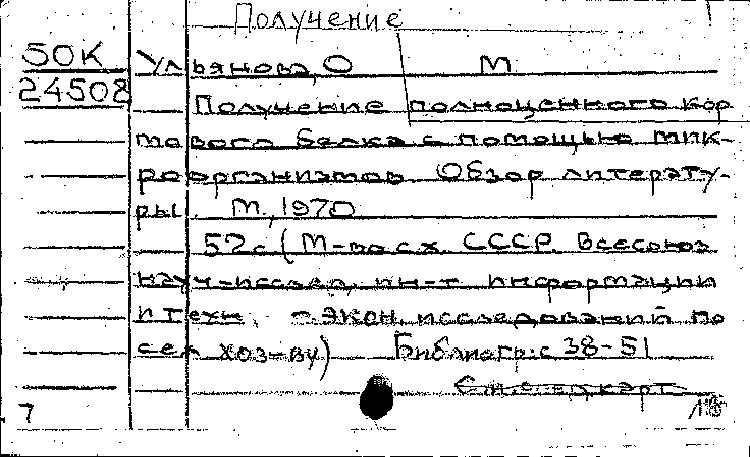 Получение
50К
Ульянова, О М
24508
Получение полноценного кор
мового белка с помощью мик-
роорганизмов Обзор литерату-
ры. М., 1970
52с (М-во с.х. СССР. Всесоюз
науч-исслед, ин-т информации
и техн. -экон. исследований по
сел хоз-ву) Библиогр: с 38-51
7